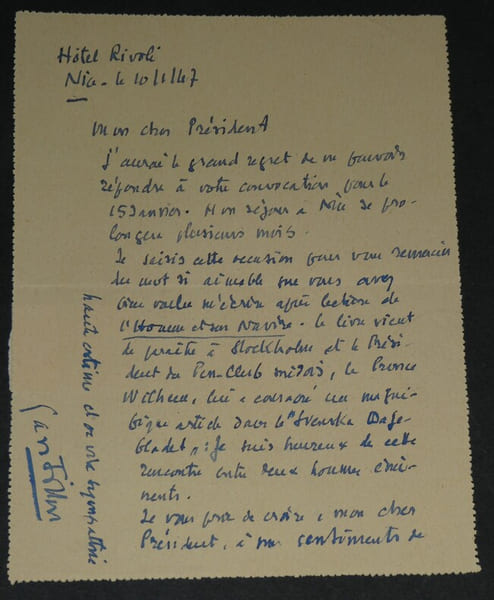 Hôtel Rivoli
Nice - le 10/1/47
Mon cher Président
J'aurai le grand regret de ne pouvoir
répondre à votre convocation pour le
15 Janvier. Mon séjour à Nice se pro-
longera plusieurs mois.
Je saisis cette occasion pour vous remercier
du mot si aimable que vous avez
bien voulu m'écrire après lecture de
l'Homme et son Navire. Le livre vient
de paraître à Stockholm et le Prési-
dent du Pen-Club suédois, le Prince
Wilhem, lui a consacré un magni-
fique article dans le "Svenska Dage-
bladet". Je suis heureux de cette
rencontre entre deux hommes émi-
nents.
Je vous prie de croire, mon cher
Président, à mes sentiments de
haute estime et de vive sympathie